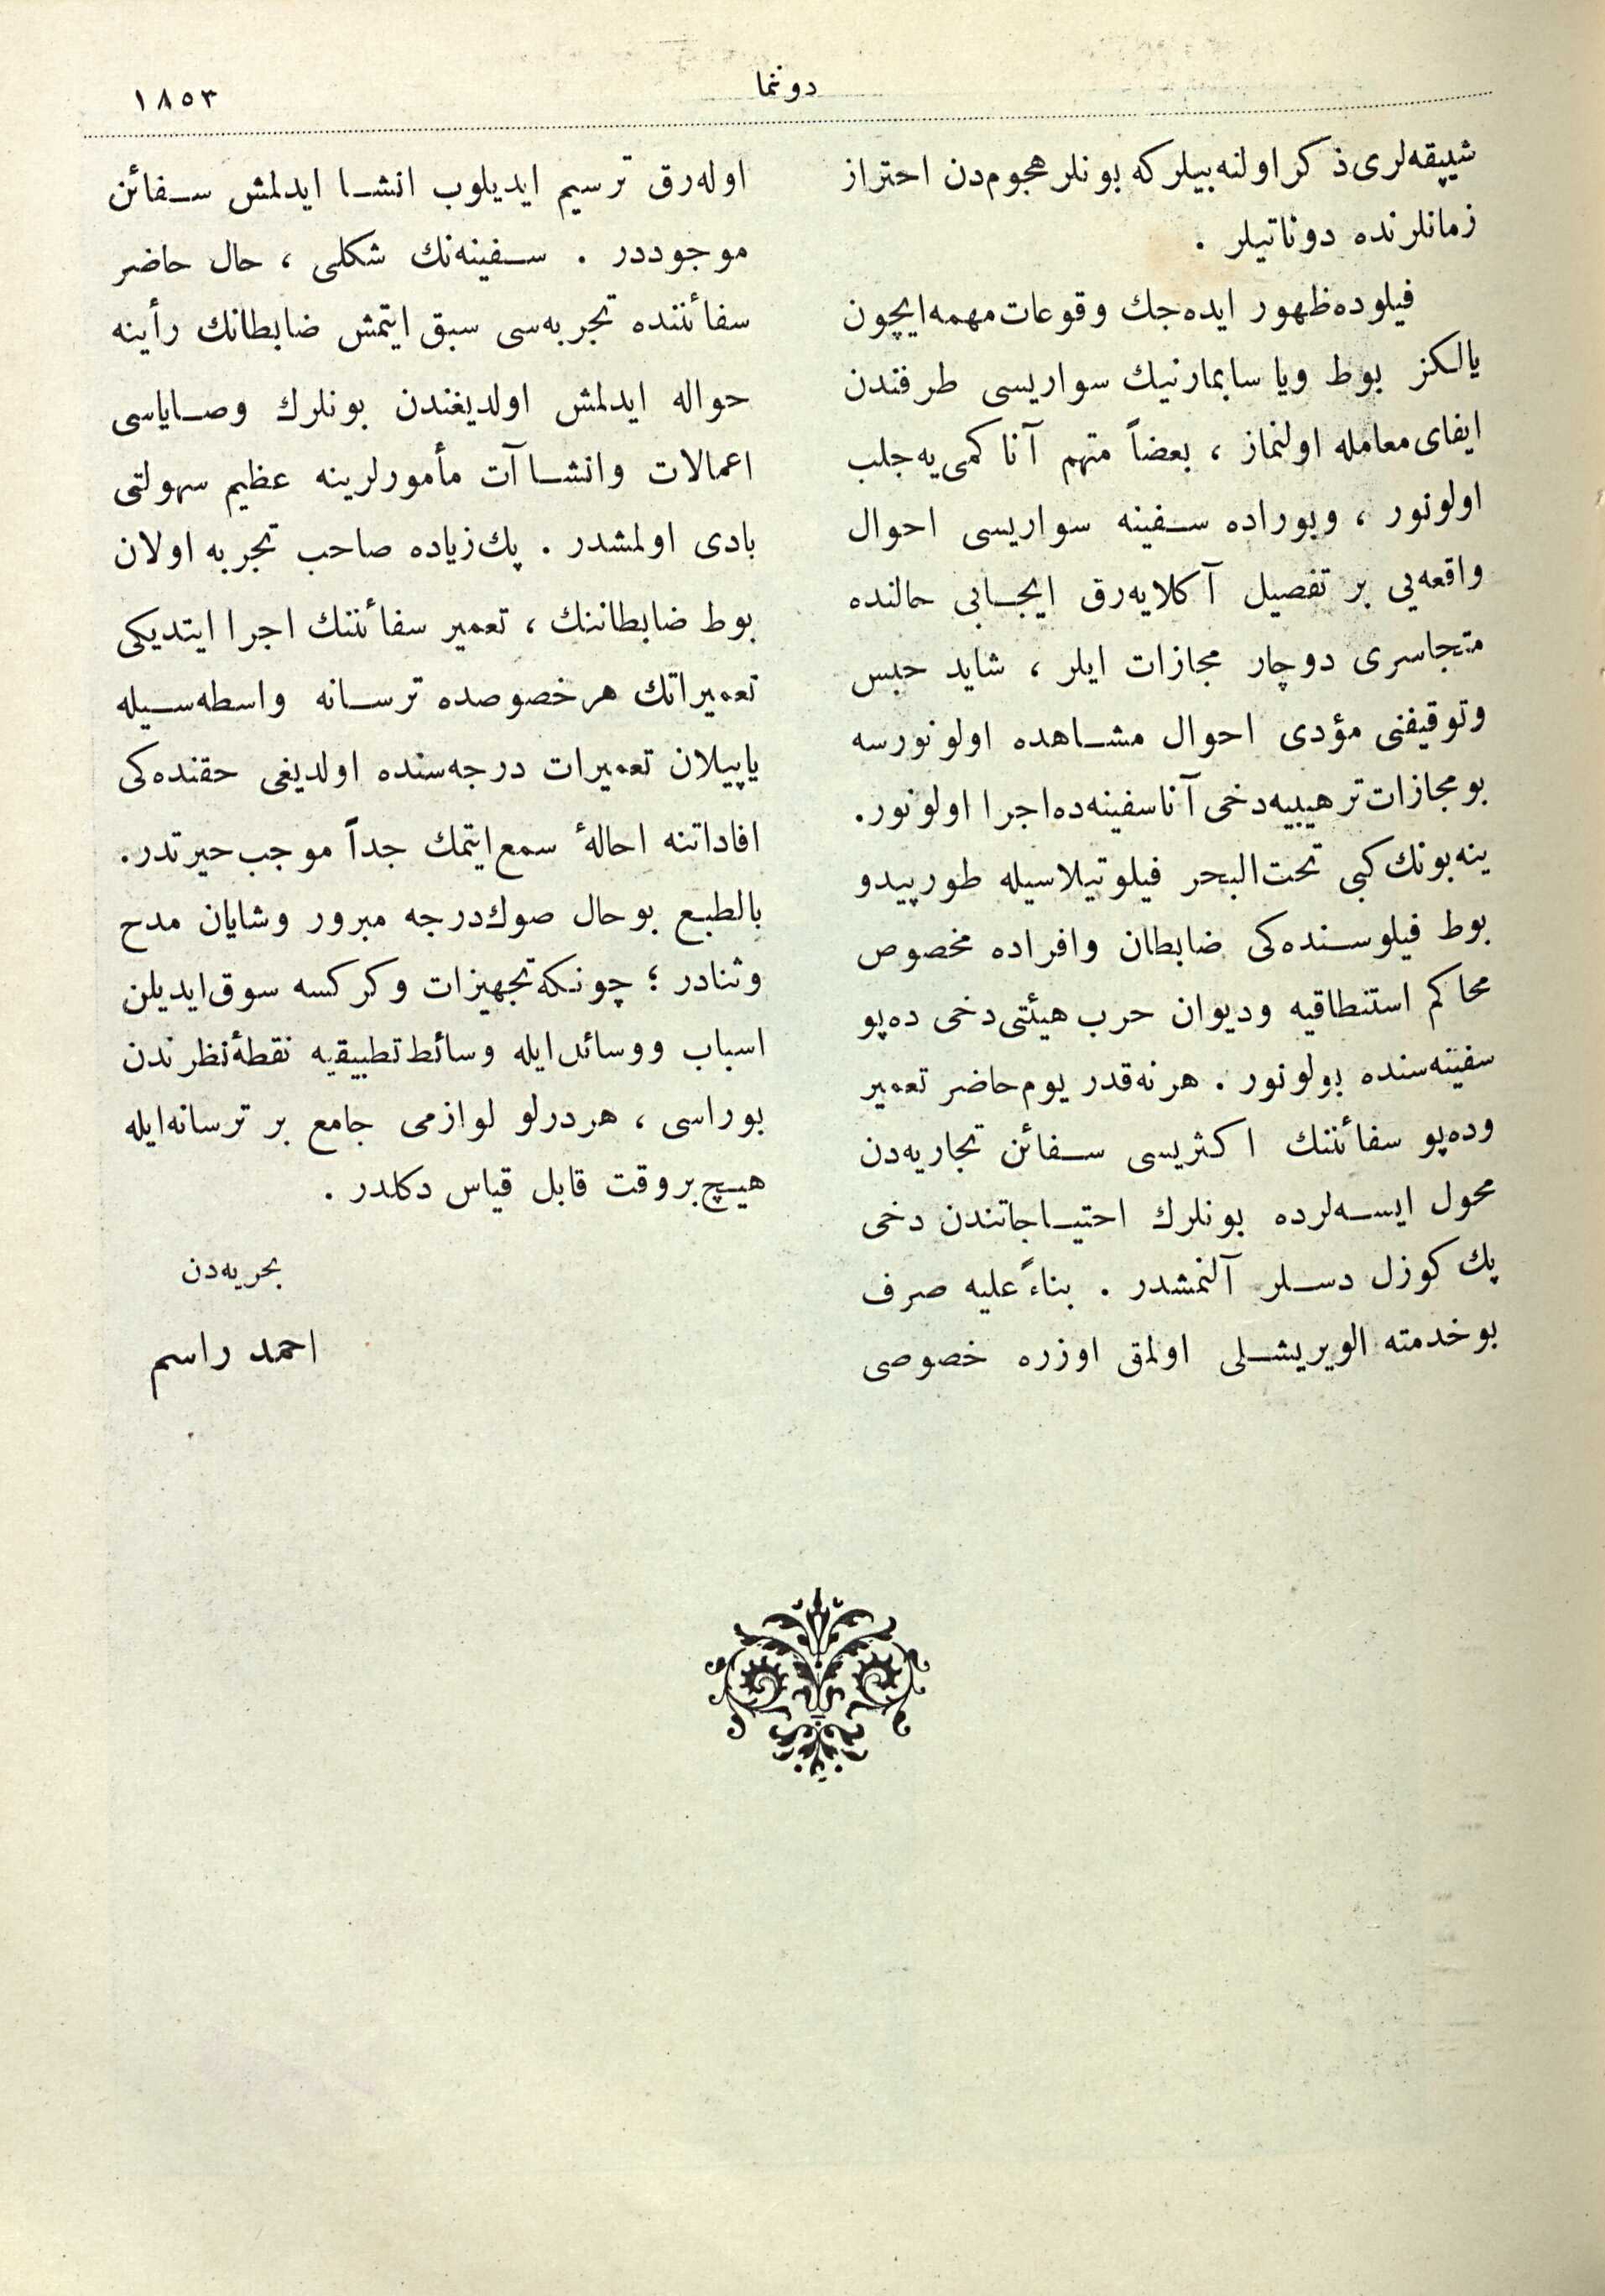 دوننما
١٨٥٣
شیپقه‌لری ذکر اولنه بیلر که بونلر هجوم‌دن احتراز
زمانلرنده دوناتیلر .
فیلوده ظهور ایده‌جك وقوعات مهمه ایچون
یالکز بوط ویا سابمارنیك سواریسی طرفندن
ایفای معامله اولنماز ، بعضاً متهم آنا کمی‌یه جلب
اولونور ، وبوراده سفینه سواریسی احوال
واقعه‌یی بر تفصیل آکلایه‌رق ایجابی حالنده
متجاسری دوچار مجازات ایلر ، شاید حبس
وتوقیفنی مؤدی احوال مشاهده اولونورسه
بو مجازات ترهیبیه دخی آنا سفینه‌ده اجرا اولونور.
ینه بونك کبی تحت‌البحر فیلوتیلاسیله طورپیدو
بوط فیلوسنده‌کی ضابطان وافراده مخصوص
محاکم استنطاقیه ودیوان حرب هیئتی دخی ده‌پو
سفینه‌سنده بولونور . هر نه‌قدر یوم حاضر تعمیر
وده‌پو سفائننك اکثریسی سفائن تجاریه‌دن
محول ایسه‌لرده بونلرك احتیاجاتندن دخی
پك کوزل دسلر آلنمشدر . بناءً علیه صرف
بو خدمته الویریشلی اولمق اوزره خصوصی
اوله‌رق ترسیم ایدیلوب انشا ایدلمش سفائن
موجوددر . سفینه‌نك شکلی ، حال حاضر
سفائننده تجربه‌سی سبق ایتمش ضابطانك رأینه
حواله ایدلمش اولدیغندن بونلرك وصایاسی
اعمالات وانشاآت مأمورلرینه عظیم سهولتی
بادی اولمشدر . پك زیاده صاحب تجربه اولان
بوط ضابطاننك ، تعمیر سفائننك اجرا ایتدیکی
تعمیراتك هر خصوصده ترسانه واسطه‌سیله
یاپیلان تعمیرات درجه‌سنده اولدیغی حقنده‌کی
افاداتنه احالۀ سمع ایتمك جداً موجب حیرتدر.
بالطبع بو حال صوك درجه مبرور وشایان مدح
وثنادر ؛ چونکه تجهیزات وکرکسه سوق ایدیلن
اسباب ووسائل ایله وسائط تطبیقیه نقطۀ نظرندن
بوراسی ، هر درلو لوازمی جامع بر ترسانه ایله
هیچ بر وقت قابل قیاس دکلدر .
بحریه‌دن
احمد راسم